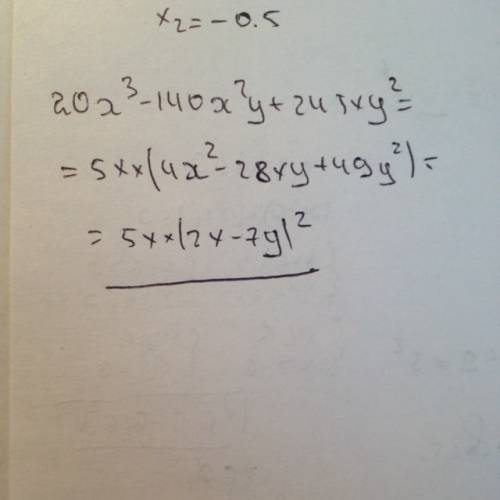 x₂ = -0.5
20x³ - 140x²y + 245xy² =
= 5x×(4x² - 28xy + 49y²) =
= 5x×(2x - 7y)²